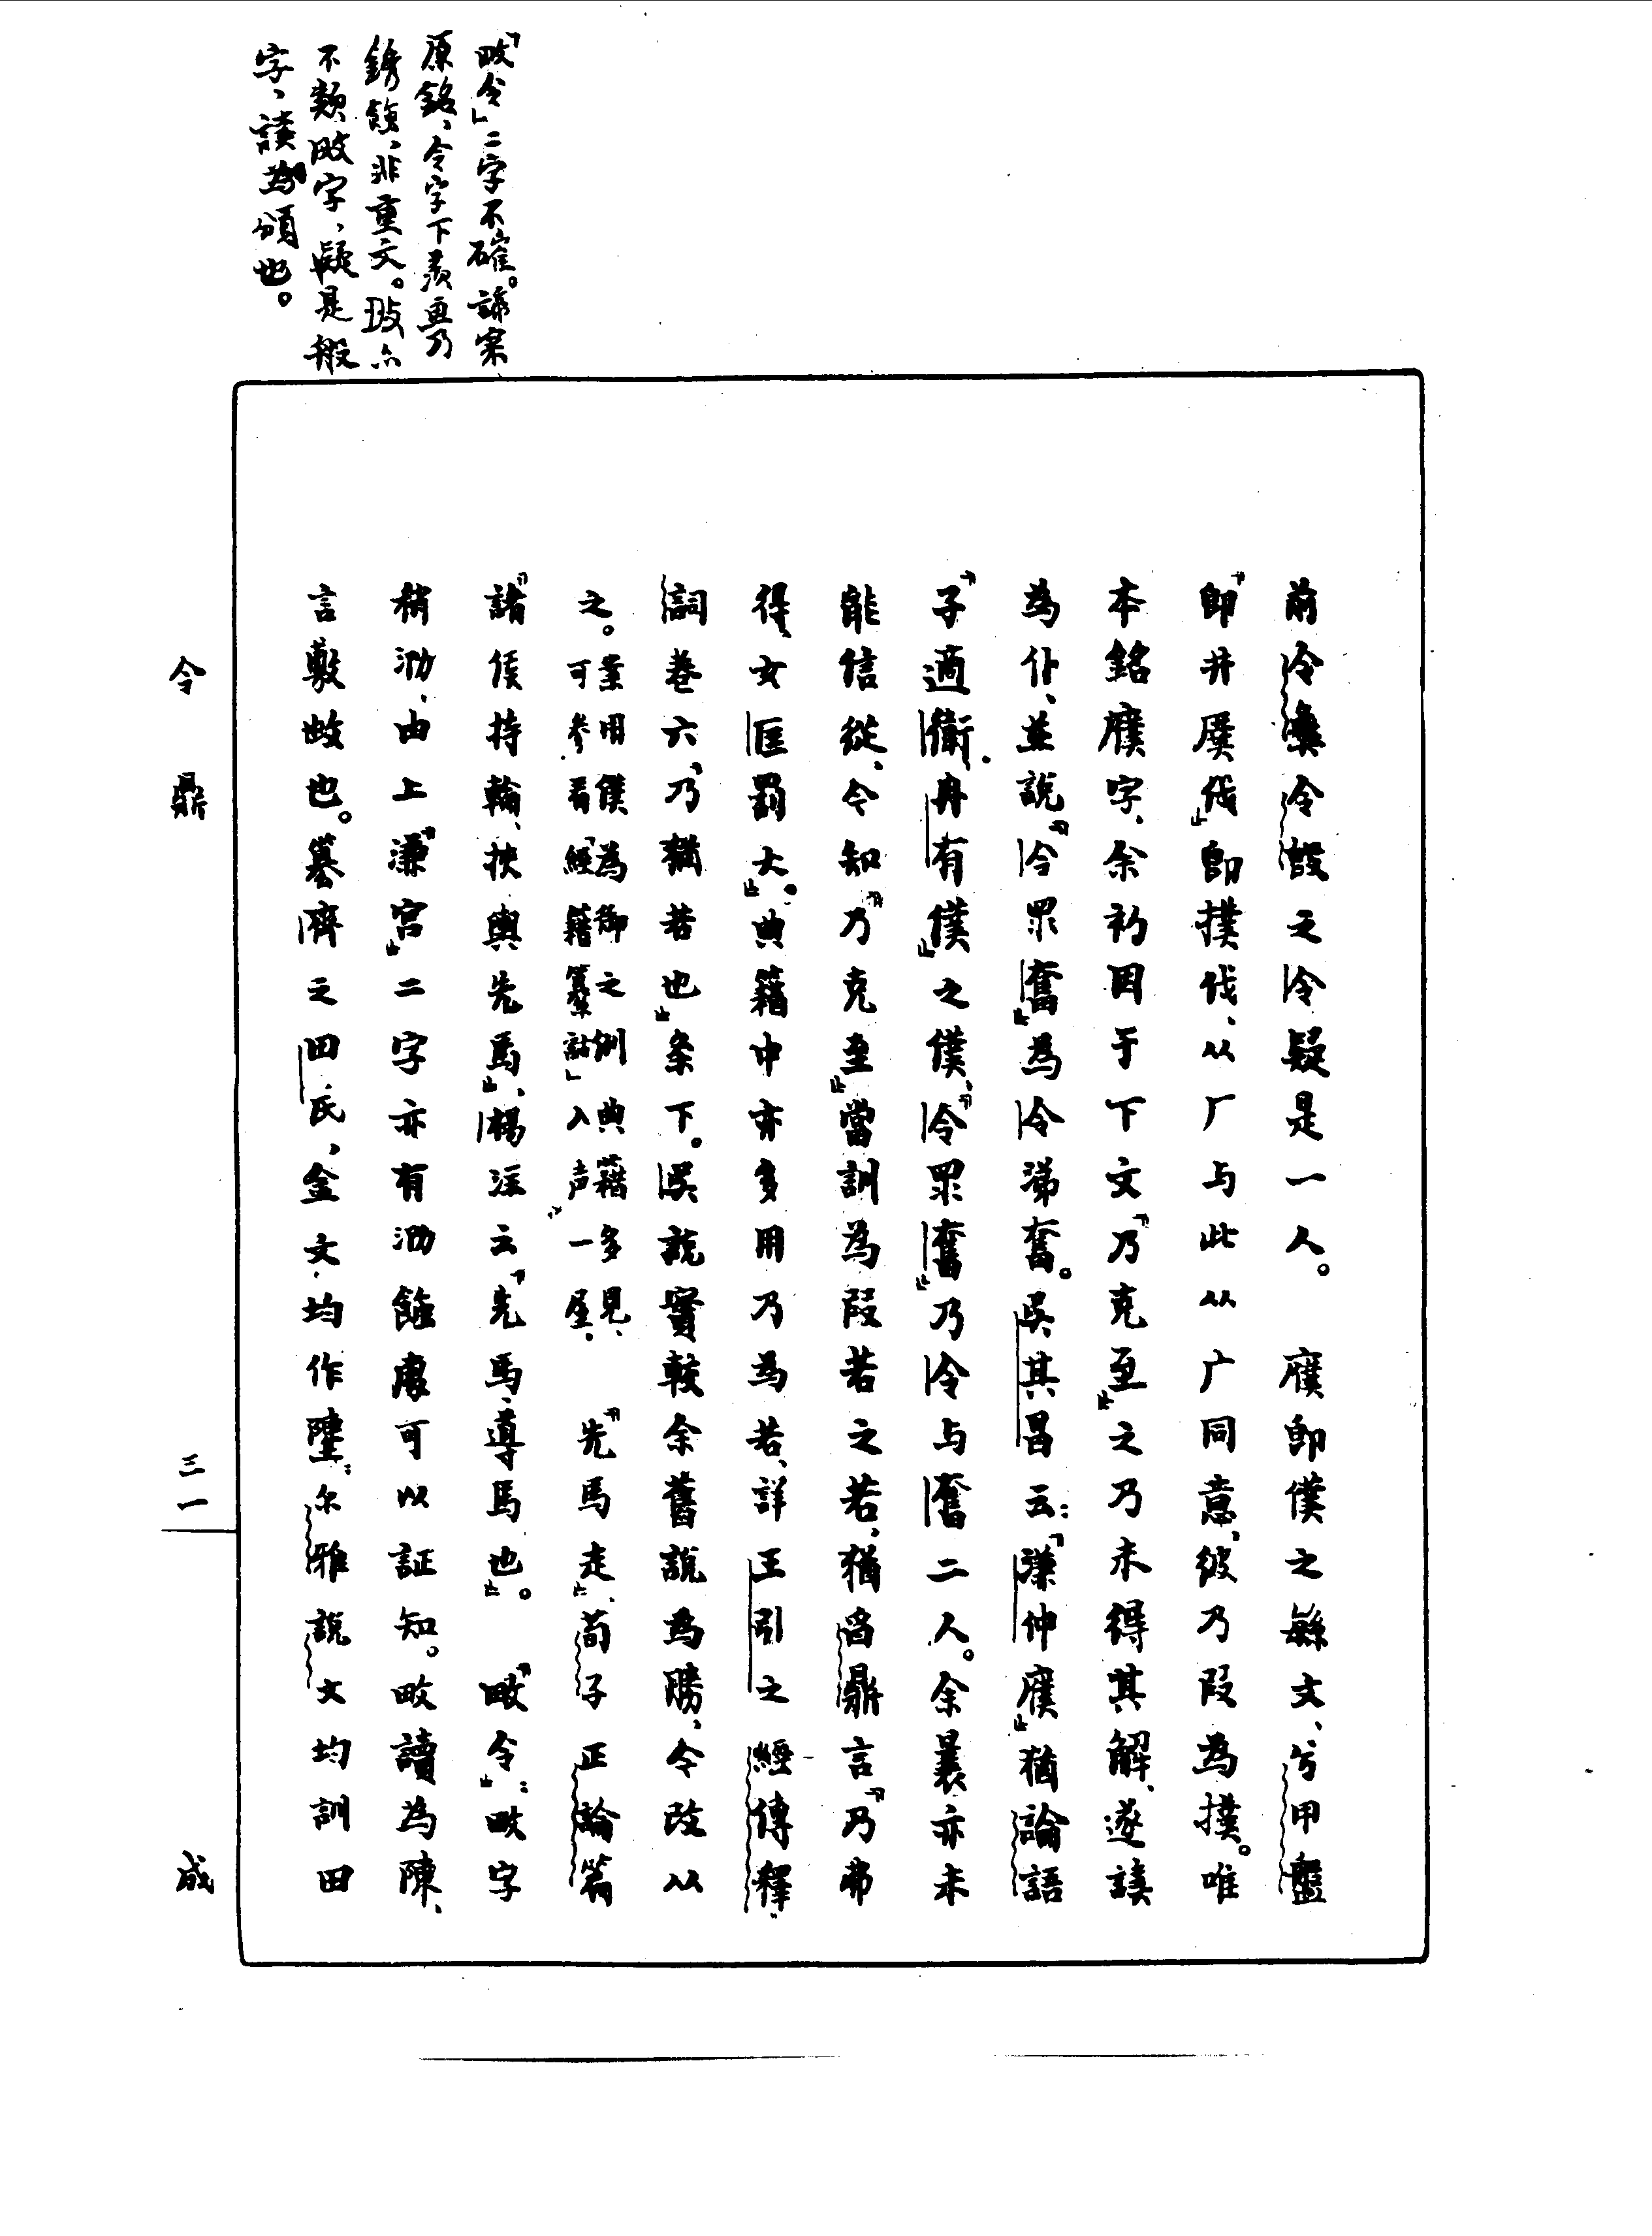 「畋令」二字不確。諦案
原銘、令字下羨畫乃
銹餘、非重文。畋亦
不類畋字、疑是般
字、讀為頒也。
前令彝令𣪘之令疑是一人。 㒒即僕之繇文、兮甲盤
「即井𢊾伐」即撲伐、从厂与此从广同意、彼乃叚為撲。唯
本銘㒒字、余初因于下文「乃克至」之乃未得其解、遂讀
為仆、並說「令眔奮」為令涕奮。吳其昌云：「溓仲㒒」猶論語
「子適衛、冉有僕」之僕、「令眔奮」乃令与奮二人。余曩亦未
能信從、今知「乃克至」當訓為叚若之若、猶曶鼎言「乃弗
得、女匡罰大」。典籍中亦多用乃為若、詳王引之經傳釋
詞卷六「乃猶若也」条下。吳說實較余舊說為勝、今改从
之。案用僕為御之例典籍多見、
可參看「經籍籑詁」入声一屋、
「先馬走」、荀子正論篇
「諸侯持輪、挾輿先馬」、楊注云「先馬、導馬也」。 「畋令」：畋字
稍泐、由上「溓宮」二字亦有泐餘處可以証知。畋讀為陳、
言敶畋也。墓齊之田氏，金文均作塦：尔雅說文均訓田
令鼎
三一
成